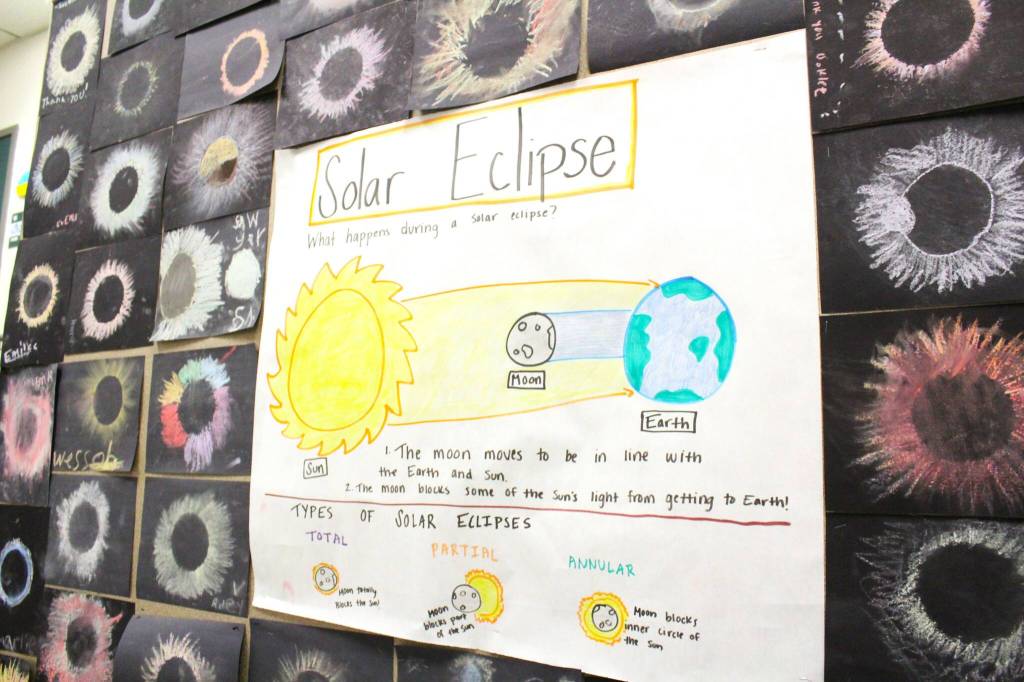 Thank you!
Solar Eclipse
What happens during a solar eclipse?
Moon
Earth
Sun
1. The moon moves to be in line with
the Earth and Sun.
2. The moon blocks some of the Sun's light from getting to Earth!
TYPES OF SOLAR ECLIPSES
TOTAL
Moon totally
blocks the Sun!
PARTIAL
Moon
blocks part
of the Sun
ANNULAR
Moon blocks
inner circle of
the Sun